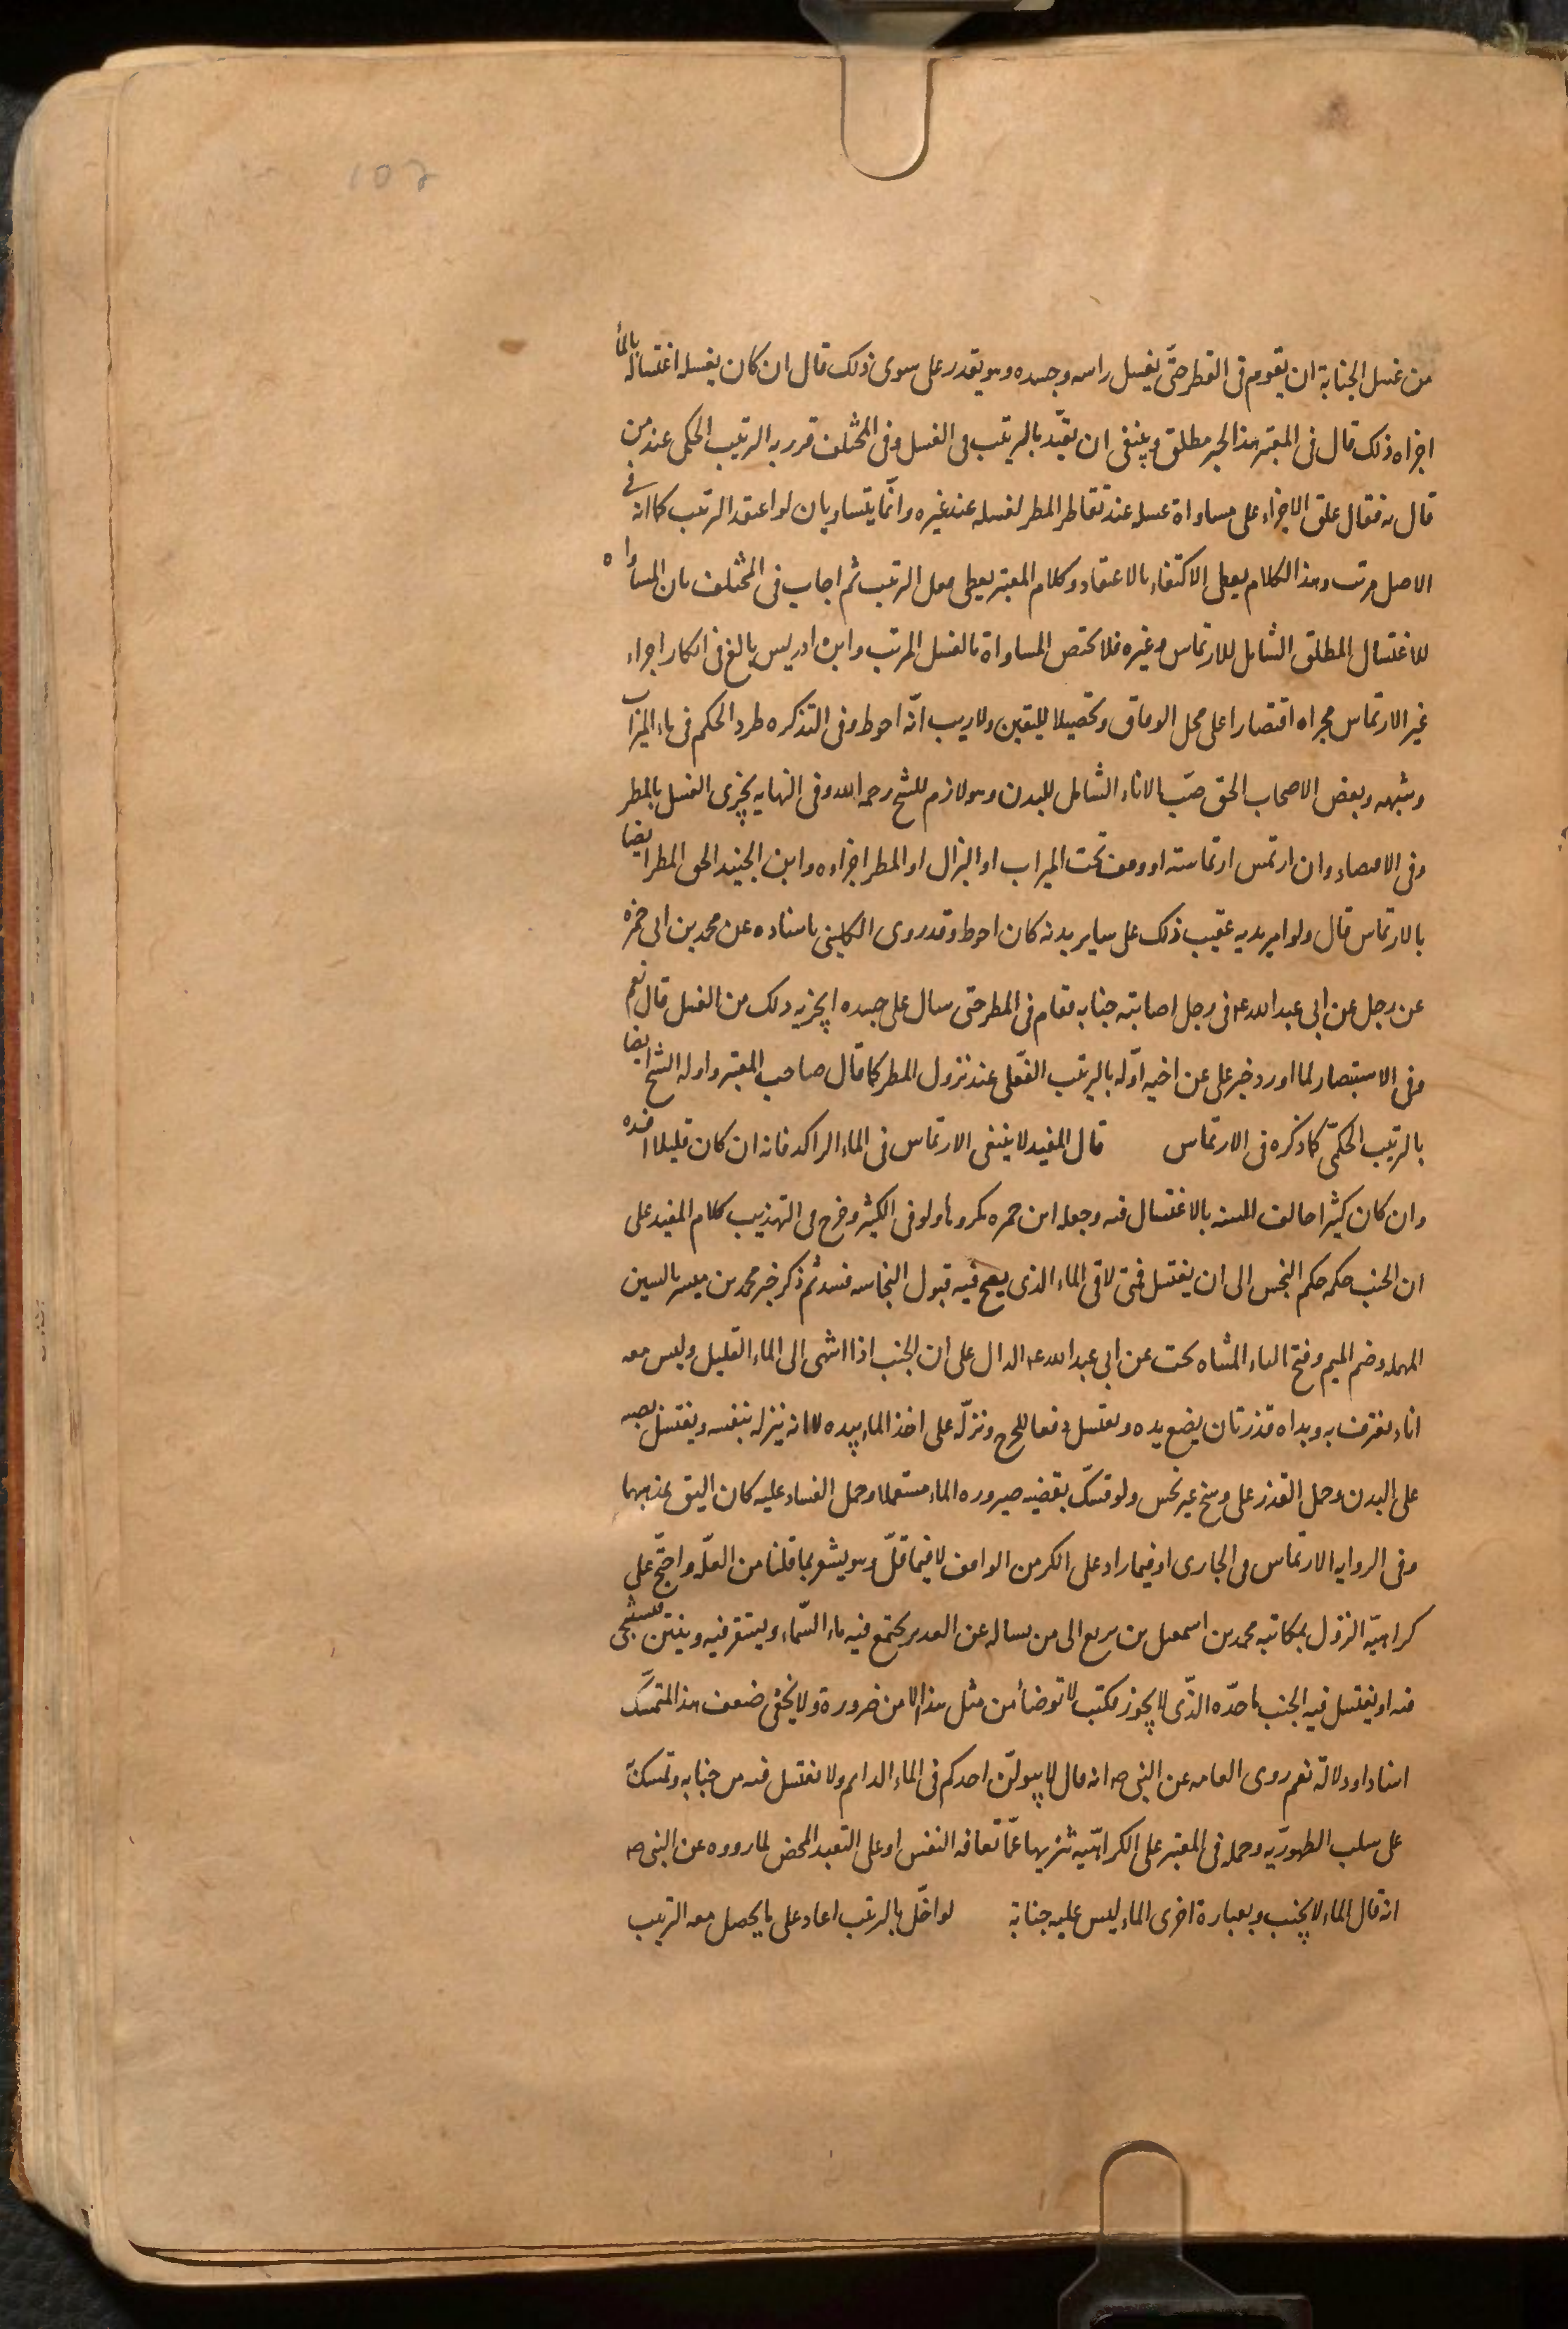 107
من غسل الجنابة ان يقوم فى القطر حتّى يغسل راسه وجسده وهو يقدر على سوى ذلك قال ان كان يغسله اغتساله بالمأ
اجزاه ذلك قال فى المعتبر هذا الخبر مطلق وينبغى ان يقيّد بالترتيب فى الغسل وفى المختلف قرر به الترتيب الحكمى عند من
قال به فقال علق الاجزاء على مساواة غسله عند تقاطر المطر لغسله عند غيره وانّما يتساويان لو اعتقد الترتيب كما انه فى
الاصل مرتب وهذا الكلام يعطى الاكتفاء بالاعتقاد وكلام المعتبر يعطى فعل الترتيب ثم اجاب فى المختلف بان المساواه
للاغتسال المطلق الشامل للارتماس وغيره فلا تختص المساواة بالغسل المرتب وابن ادريس بالغ فى انكار اجراء
غير الارتماس مجراه اقتصارا على محل الوفاق وتحصيلا لليقين ولا ريب انّه احوط وفى التذكره طرد الحكم فى ماء الميزاب
وشبهه وبعض الاصحاب الحق صبّ الاناء الشامل للبدن وهو لازم للشيخ رحمه الله وفى النهايه يجزى الغسل بالمطر
وفى الاقتصاد وان ارتمس ارتماسة او وقف تحت الميزاب او البزال او المطر اجزاوه وابن الجنيد الحق المطر ايضا
بالارتماس قال ولو امر يديه عقيب ذلك على ساير بدنه كان احوط وقد روى الكلينى باسناده عن محمد بن ابى حمزه
عن رجل عن ابى عبد الله ع فى رجل اصابته جنابه فقام فى المطر حتى سال على جسده ايجزيه ذلك من الغسل قال نعم
وفى الاستبصار لما اورد خبر على عن اخيه اوّله بالترتيب الفعلى عند نزول المطر كما قال صاحب المعتبر واوله الشيخ ايضا
بالترتيب الحكمّى كما ذكره فى الارتماس قال المفيد لا ينبغى الارتماس فى الماء الراكد فانه ان كان قليلا افسده
وان كان كثيرا خالف السنه بالاغتسال فيه وجعله ابن حمزه مكروها ولو فى الكثير وخرج فى التهذيب كلام المفيد على
ان الجنب حكمه حكم النجس الى ان يغتسل فمتى لاقى الماء الذى يصح فيه قبول النجاسه فسد ثم ذكر خبر محمد بن ميسر بالسين
المهمله وضم الميم وفتح الياء المثناه تحت عن ابى عبد الله ع الدال على ان الجنب اذا انتهى الى الماء القليل وليس معه
اناء يغرف به ويداه قذرتان يضع يده ويغتسل دفعا للحرج ونزّله على اخذ الماء بيده لا انه ينزله بنفسه ويغتسل بصبه
على البدن وحمل القذر على وسخ غير نجس ولو تمسّك بقضيه صيروره الماء مستعملا وحمل الفساد عليه كان اليق بمذهبهما
وفى الروايه الارتماس فى الجارى او فيما زاد على الكر من الواقف لا فيما قلّ وهو يشعر بما قلنا من العلّه واحتجّ على
كراهيّة النزول بمكاتبه محمد بن اسمعيل بن بزيع الى من يساله عن الغدير يجتمع فيه ماء السّماء ويستقر فيه ويغتسل يستنجى
فيه او يغتسل فيه الجنب ما حدّه الذّى لا يجوز فكتب لا توضأ من مثل هذا الا من ضرورة ولا يخفى ضعف هذا المتمسّك
اسنادا ودلالة نعم روى العامه عن النبى ص انه قال لا يبولنّ احدكم فى الماء الدايم ولا يغتسل فيه من جنابه وتمسك به
على سلب الطهوريّه وحمله فى المعتبر على الكراهيّه تنزيها عمّا تعافه النفس او على التعبد المحض لما رووه عن النبى ص
انه قال الماء لا يجنب وبعبارة اخرى الماء ليس عليه جنابة لو اخّل بالترتيب اعاد على ما يحصل معه الترتيب